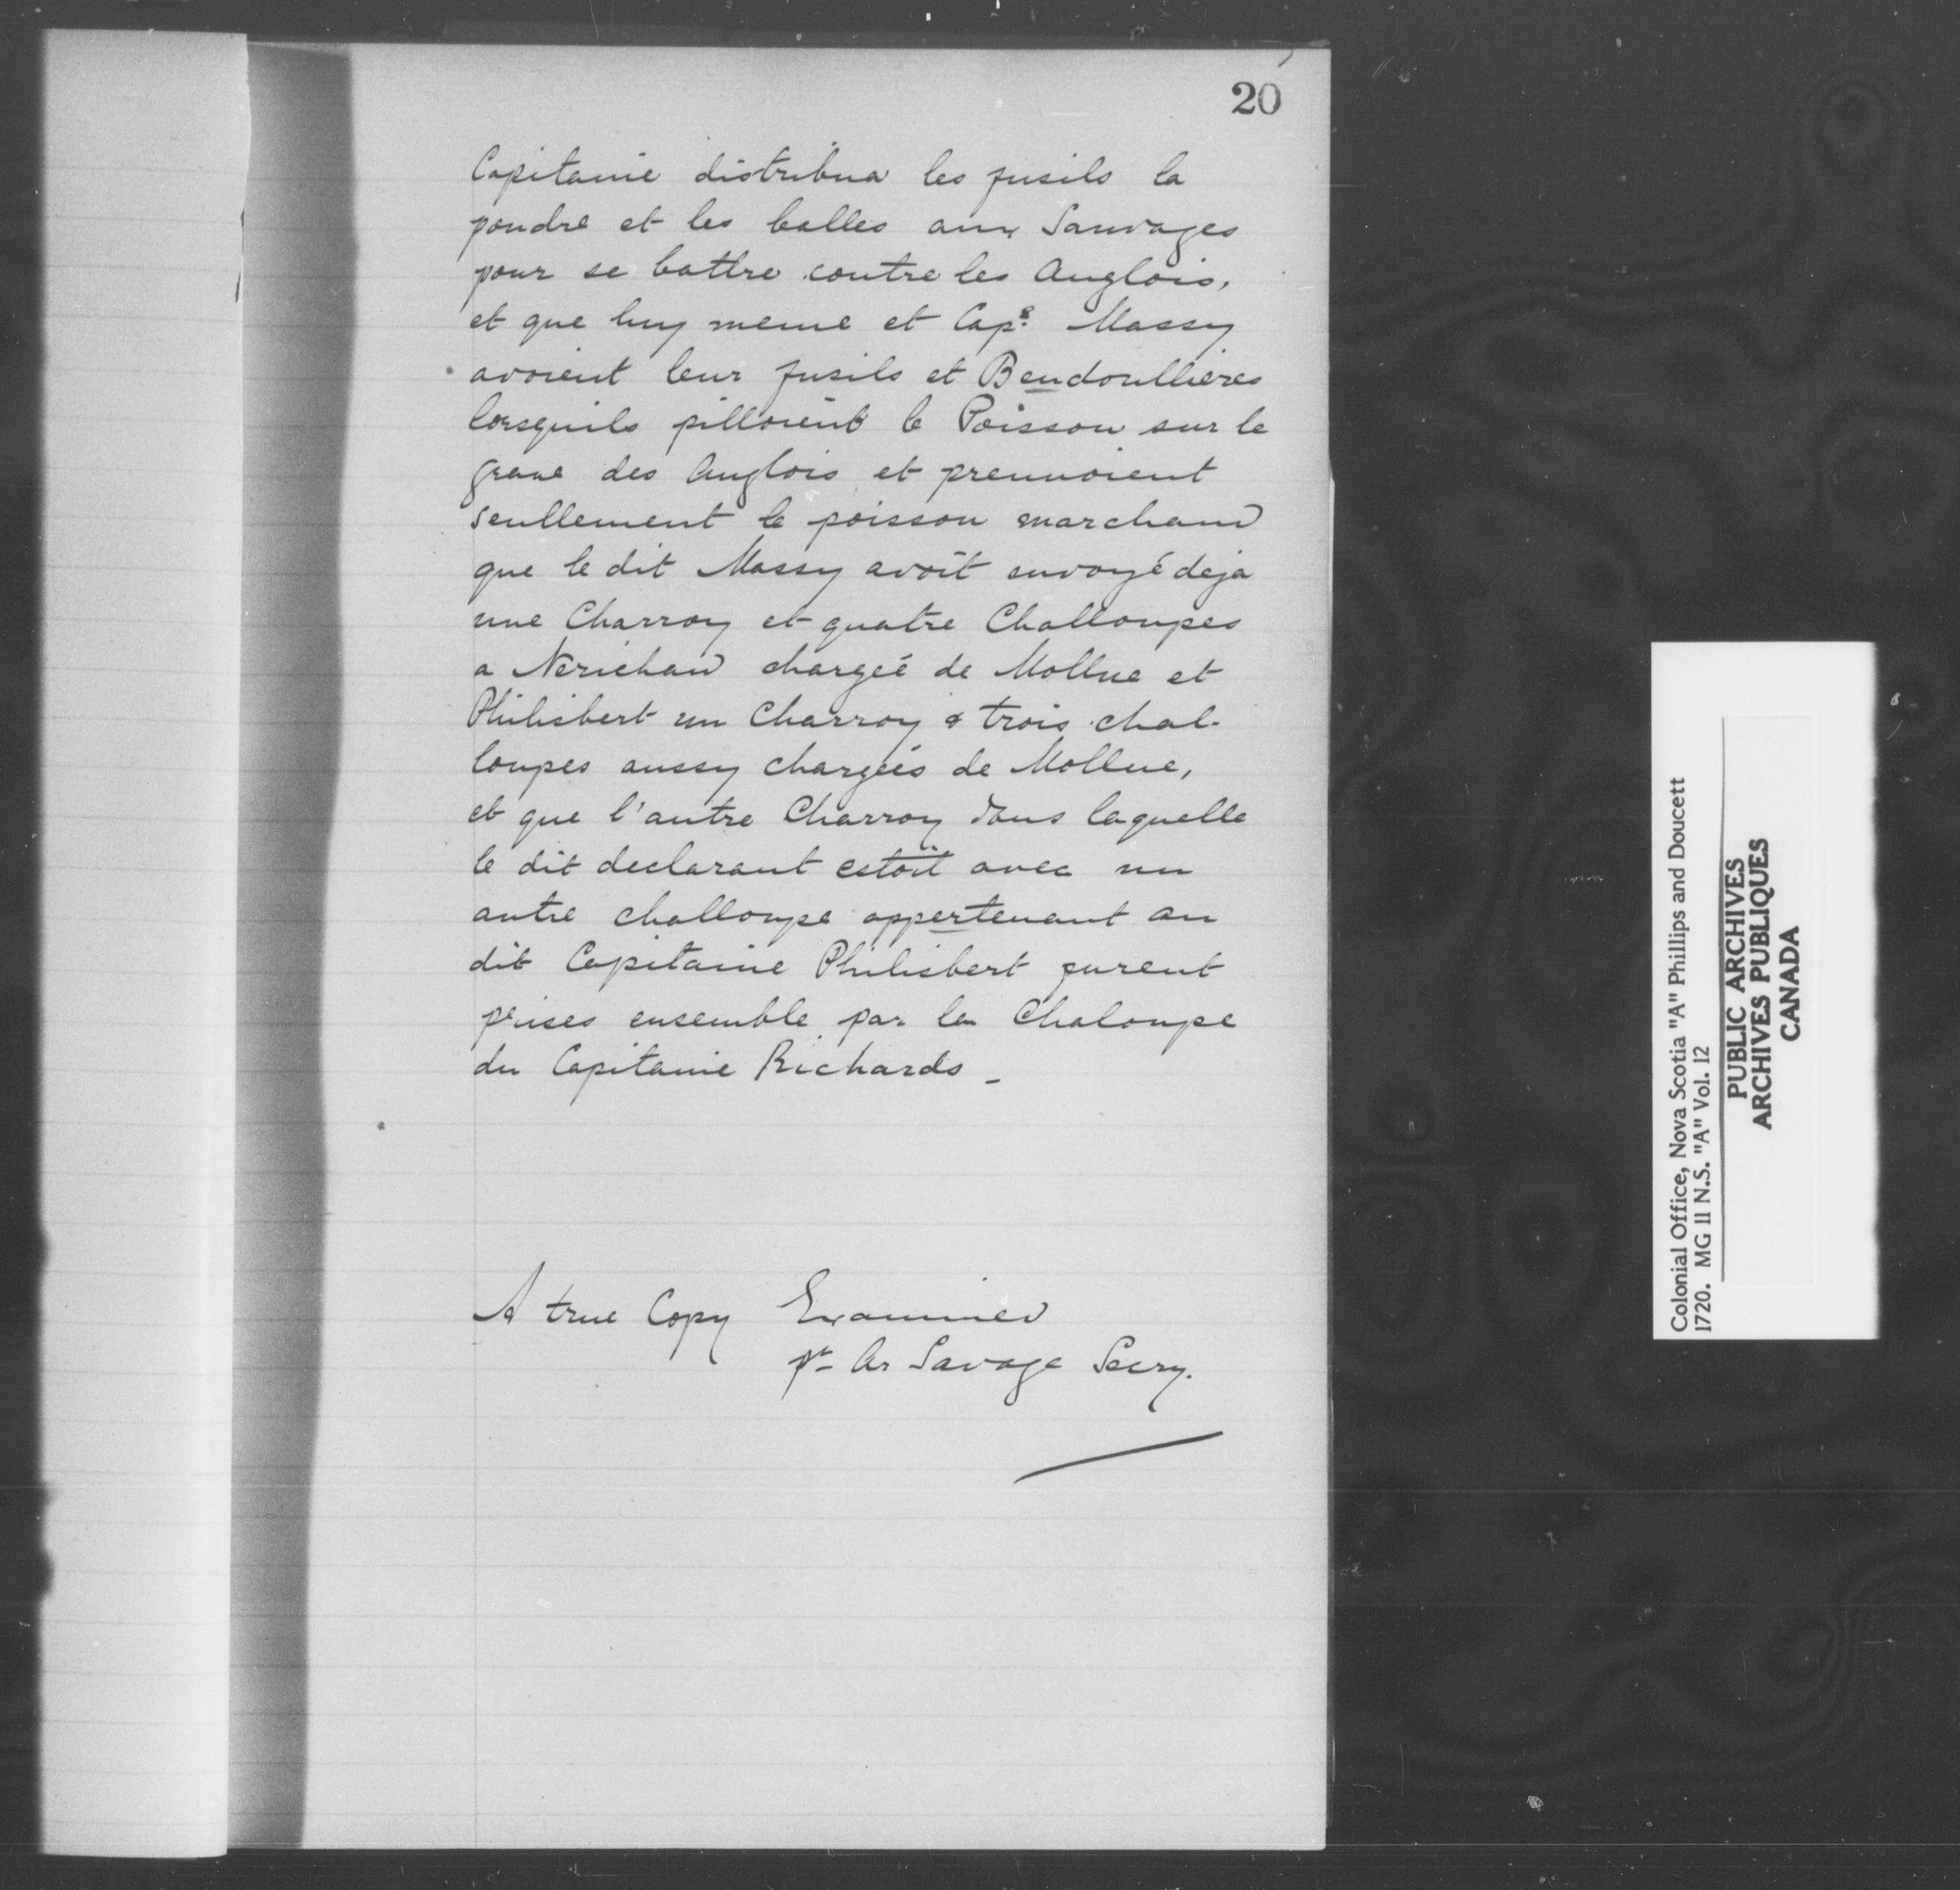 20
Capitaine distribua les fusils la
poudre et les balles aux Sauvages
pour se battre contre les Anglois,
et que luy meme et Cape. Massy
avoient leur fusils et Bendoullieres
lorsquils pilloient le Poisson sur le
grave des Anglois et prennoient
seullement le poisson marchand
que le dit Massy avoit envoyé deja
une Charroy et quatre Challoupes
a Nerichau chargeé de Mollue et
Philisbert un Charroy & trois chal-
loupes aussy chargeés de Mollue,
et que l'autre Charroy dans laquelle
le dit declarant estoit avec un
autre challoupe appertenant au
dit Capitaine Philisbert furent
prises ensemble par la Chaloupe
du Capitaine Richards -
A true Copy Examined
pr. Ar Savage Secry.
Colonial Office, Nova Scotia "A" Phillips and Doucett
1720. MG 11 N.S. "A" Vol. 12
PUBLIC ARCHIVES
ARCHIVES PUBLIQUES
CANADA